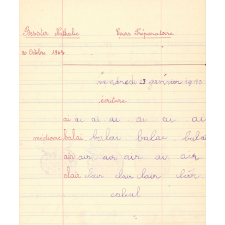 Nathalie Cours Préparatoire
20 Octobre
vendredi 23 janvier
écriture
ai ai ai ai ai ai ai
balai balai balai balai
air air air air air
clair clair clair clair
calcul